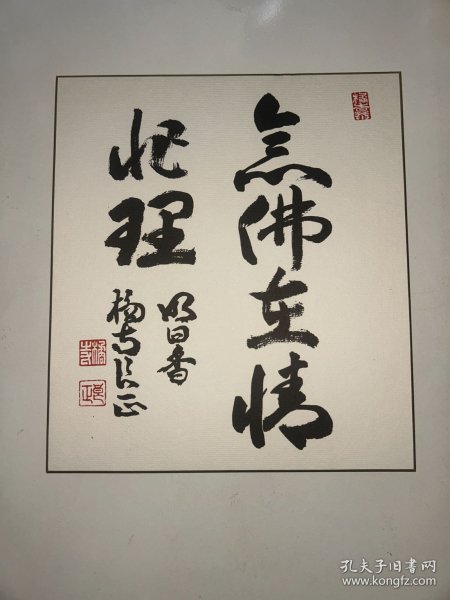 念佛在情
非理
明日香
橘寺良正
橘寺
良正
孔夫子旧书网
www.kongfz.com